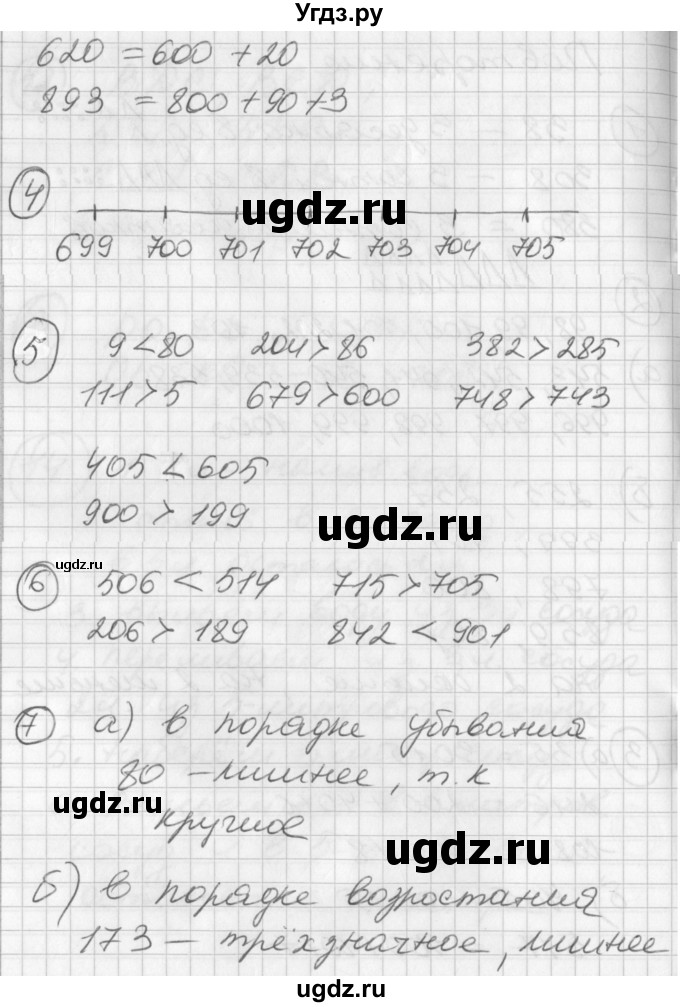 Угдз.ру
620 = 600 + 20
893 = 800 + 90 + 3
4
ugdz.ru
699 700 701 702 703 704 705
5 9 < 80 204 > 86 382 > 285
111 > 5 679 > 600 748 > 743
405 < 605
900 > 199
ugdz.ru
ugdz.ru
6 506 < 514 715 > 705
206 > 189 842 < 901
7 а) в порядке убывания
80 – лишнее, т.к
ugdz.ru
круглое
ugdz.ru
б) в порядке возростания
173 – трёхзначное, лишнее
ugdz.ru